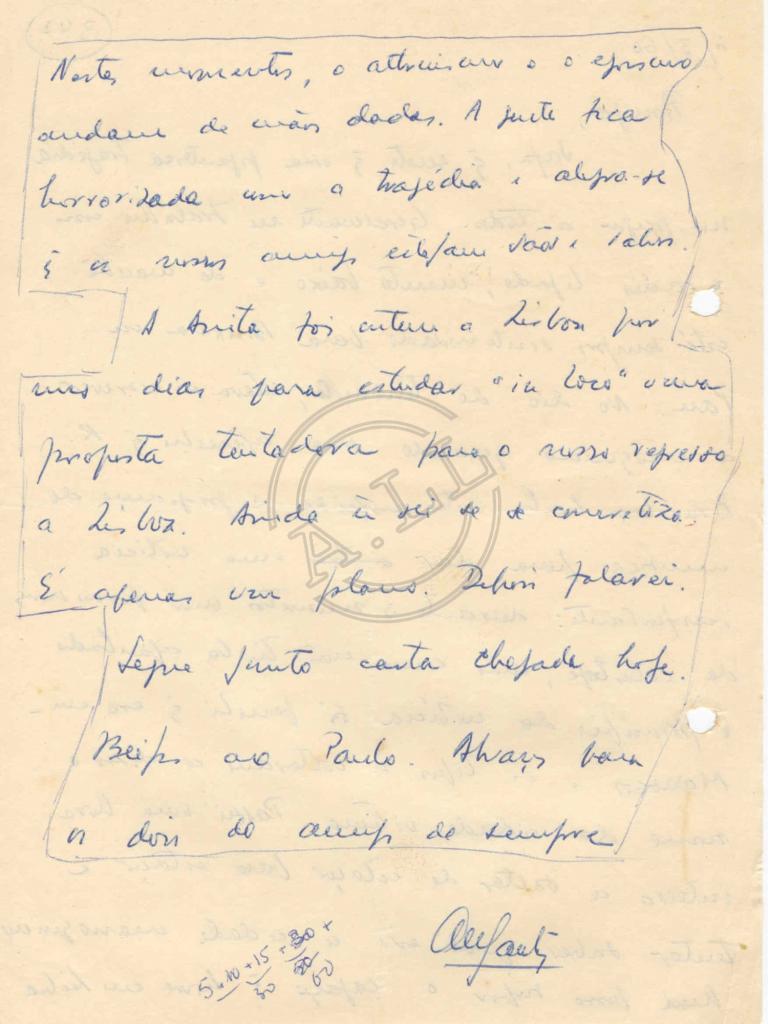 Nestes momentos, o altruismo e o egoismo
andam de mãos dadas. A gente fica
horrorizada com a tragédia e alegra-se
q os nossos amigos estejam sãos e salvos.
A Anita foi ontem a Lisboa por
uns dias para estudar "in loco" uma
proposta tentadora para o nosso regresso
a Lisboa. Ainda ñ sei se se concretiza.
É apenas um plano. Depois falarei.
Segue junto carta chegada hoje.
Beijos ao Paulo. Abraços para
os dois do amigo de sempre
5+10+15+30+
30
60
A.LL